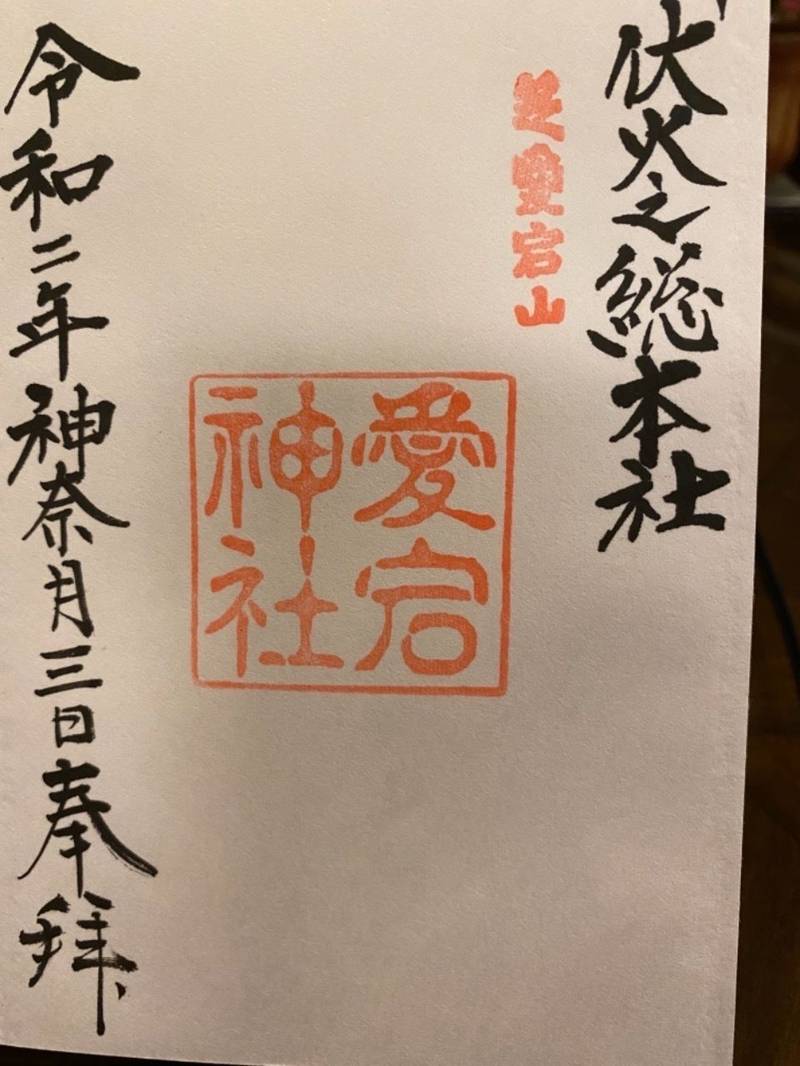 伏火之総本社
芝愛宕山
愛宕
神社
令和二年神奈月三日奉拜